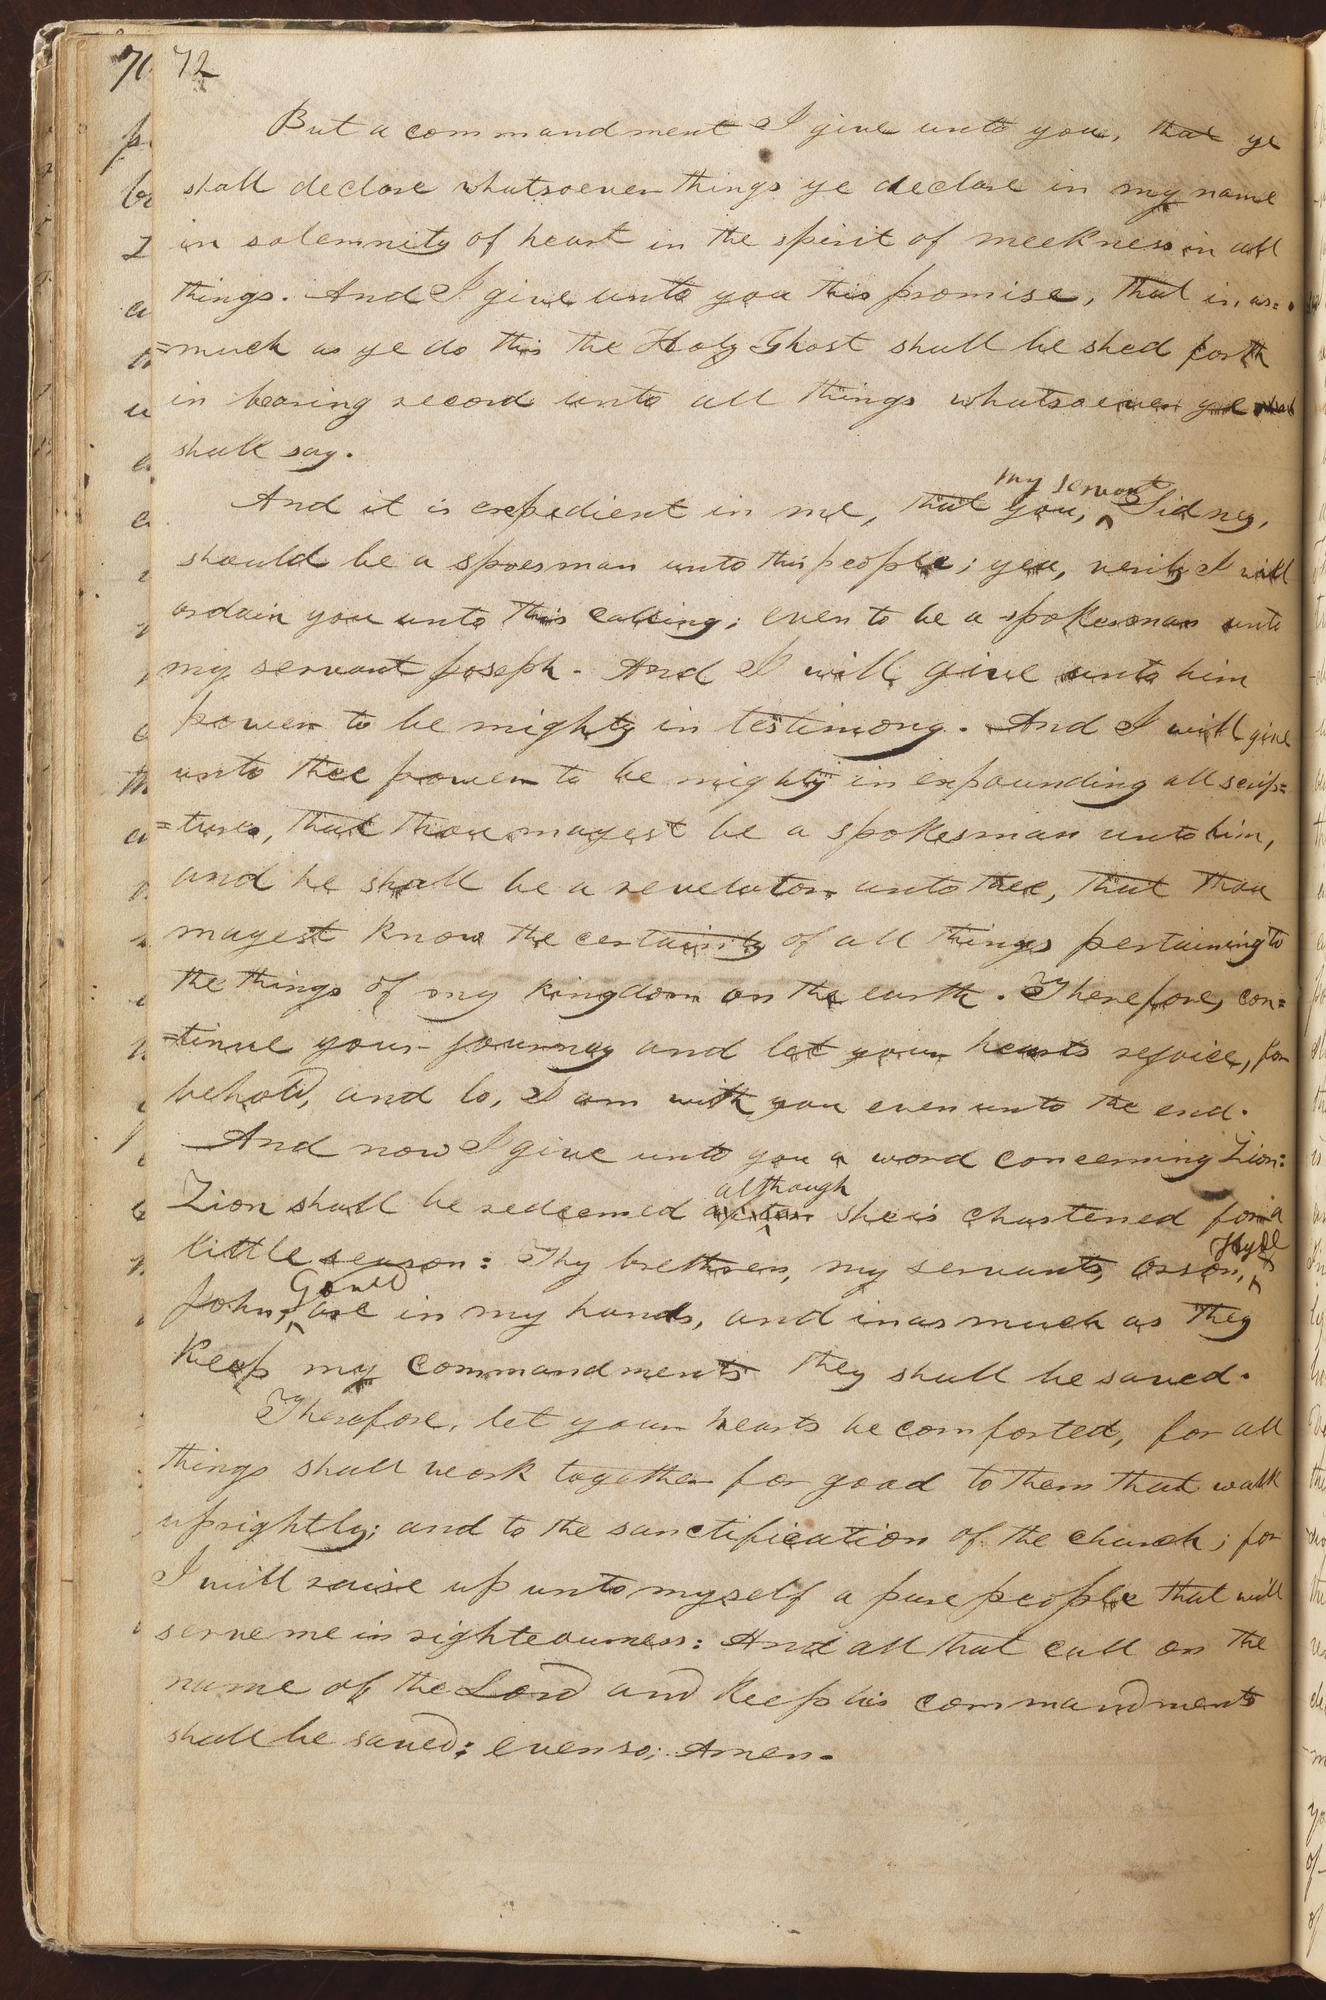 72
But a commandment I give unto you, that ye
shall declare whatsoever things ye declare in my name
in solemnity of heart in the spirit of meekness in all
things. And I give unto you this promise, that in as=
=much as ye do this the Holy Ghost shall be shed forth
in bearing record unto all things whatsoever ye
shall say.
my servant
And it is expedient in me, that you, ^ Sidney,
should be a spoesman unto this people; yea, verily I will
ordain you unto this calling; even to be a spokesman unto
my servant Joseph. And I will give unto him
power to be mighty in testimony. And I will give
unto thee power to be mighty in expounding all scrip=
=tures, that thou mayest be a spokesman unto him,
and he shall be a revelator unto thee, that thou
mayest know the certainty of all things pertaining to
the things of my kingdom on the earth. Therefore, con=
=tinue your journey and let your hearts rejoice, for
behold, and lo, I am with you even unto the end.
And now I give unto you a word concerning Zion:
although
Zion shall be redeemed ^ she is chastened for a
Hyde
little season: Thy brethren, my servants, Orson, ^
Gould
John, ^ are in my hands, and inasmuch as they
Keep my commandments they shall be saved.
Therefore, let your hearts be comforted, for all
things shall work together for good to them that walk
uprightly; and to the sanctification of the church; for
I will raise up unto myself a pure people that will
serve me in righteousness: And all that call on the
name of the Lord and Keep his commandments
shall be saved: even so; Amen.